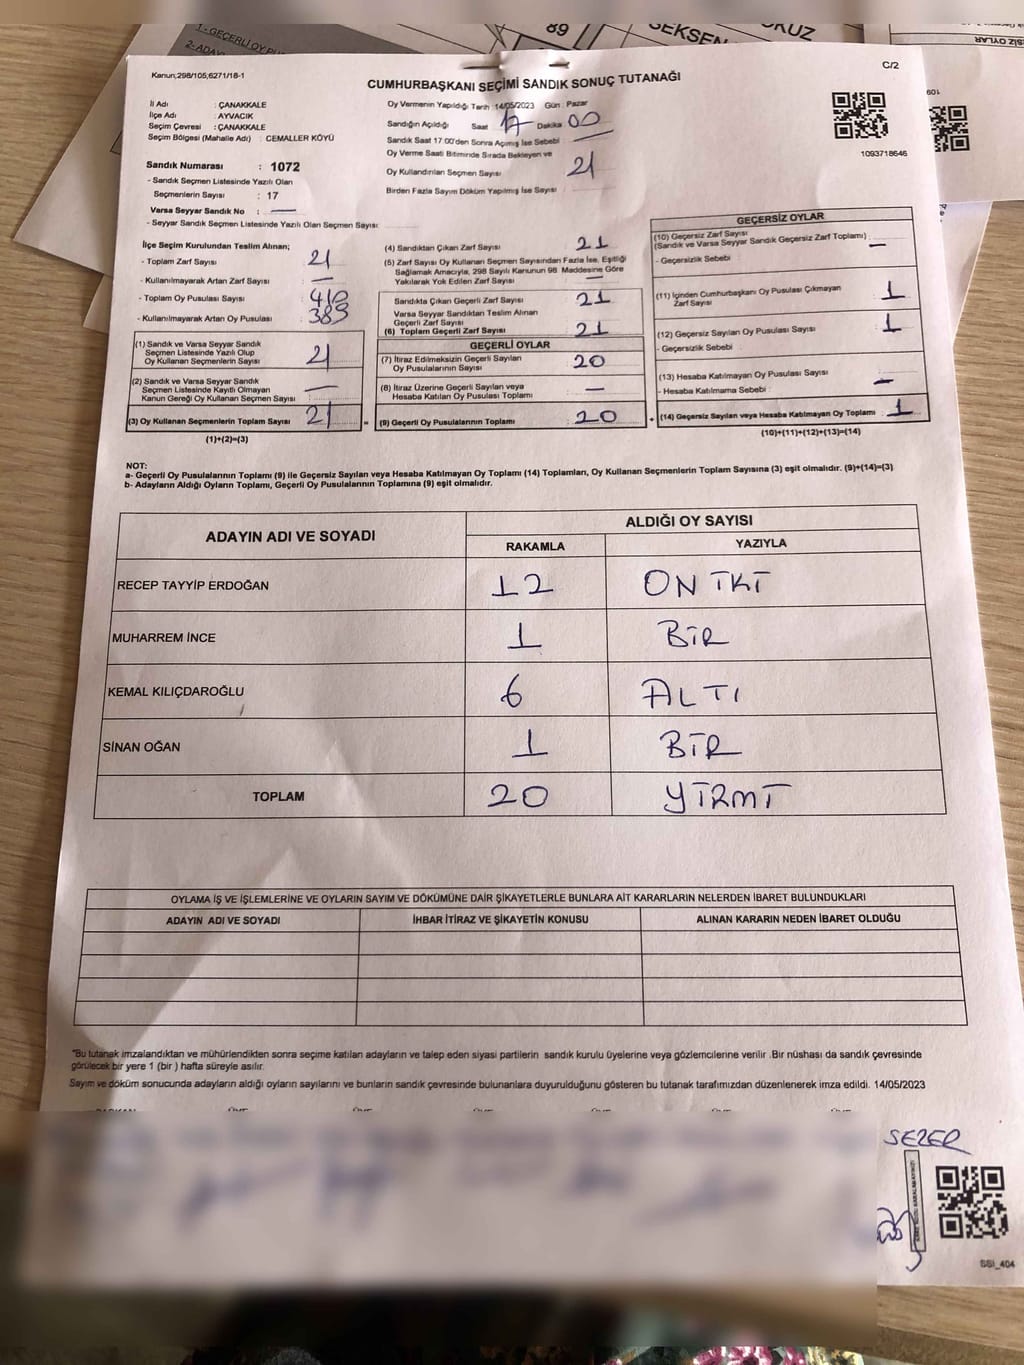 1- GEÇERLİ OY PU
2- ADAY
89
SEKSEN
OKUZ
Kanun;298/105,6271/18-1
CUMHURBAŞKANI SEÇİMİ SANDIK SONUÇ TUTANAĞI
C/2
1093718646
İl Adı : ÇANAKKALE
İlçe Adı : AYVACIK
Seçim Çevresi : ÇANAKKALE
Seçim Bölgesi (Mahalle Adı) : CEMALLER KÖYÜ
Sandık Numarası : 1072
- Sandık Seçmen Listesinde Yazılı Olan
Seçmenlerin Sayısı : 17
Varsa Seyyar Sandık No : —
- Seyyar Sandık Seçmen Listesinde Yazılı Olan Seçmen Sayısı:
Oy Vermenin Yapıldığı Tarih :14/05/2023 Gün : Pazar
Sandığın Açıldığı Saat 17 Dakika 00
Sandık Saat 17:00'den Sonra Açılmış İse Sebebi
Oy Verme Saati Bitiminde Sırada Bekleyen ve
Oy Kullandırılan Seçmen Sayısı 21
Birden Fazla Sayım Döküm Yapılmış İse Sayısı
İlçe Seçim Kurulundan Teslim Alınan;
- Toplam Zarf Sayısı 21
- Kullanılmayarak Artan Zarf Sayısı : —
- Toplam Oy Pusulası Sayısı 410
- Kullanılmayarak Artan Oy Pusulası 389
(1) Sandık ve Varsa Seyyar Sandık
Seçmen Listesinde Yazılı Olup
Oy Kullanan Seçmenlerin Sayısı 21
(2) Sandık ve Varsa Seyyar Sandık
Seçmen Listesinde Kayıtlı Olmayan
Kanun Gereği Oy Kullanan Seçmen Sayısı : —
(3) Oy Kullanan Seçmenlerin Toplam Sayısı 21
(1)+(2)=(3)
(4) Sandıktan Çıkan Zarf Sayısı 21
(5) Zarf Sayısı Oy Kullanan Seçmen Sayısından Fazla İse, Eşitliği
Sağlamak Amacıyla, 298 Sayılı Kanunun 98 Maddesine Göre
Yakılarak Yok Edilen Zarf Sayısı —
Sandıkta Çıkan Geçerli Zarf Sayısı 21
Varsa Seyyar Sandıktan Teslim Alınan
Geçerli Zarf Sayısı
(6) Toplam Geçerli Zarf Sayısı 21
GEÇERLİ OYLAR
(7) İtiraz Edilmeksizin Geçerli Sayılan
Oy Pusulalarının Sayısı 20
(8) İtiraz Üzerine Geçerli Sayılan veya
Hesaba Katılan Oy Pusulası Toplamı : —
(9) Geçerli Oy Pusulalarının Toplamı 20
GEÇERSİZ OYLAR
(10) Geçersiz Zarf Sayısı
(Sandık ve Varsa Seyyar Sandık Geçersiz Zarf Toplamı) —
- Geçersizlik Sebebi
(11) İçinden Cumhurbaşkanı Oy Pusulası Çıkmayan
Zarf Sayısı 1
(12) Geçersiz Sayılan Oy Pusulası Sayısı 1
- Geçersizlik Sebebi
(13) Hesaba Katılmayan Oy Pusulası Sayısı
- Hesaba Katılmama Sebebi —
(14) Geçersiz Sayılan veya Hesaba Katılmayan Oy Toplamı 1
(10)+(11)+(12)+(13)=(14)
NOT:
a- Geçerli Oy Pusulalarının Toplamı (9) ile Geçersiz Sayılan veya Hesaba Katılmayan Oy Toplamı (14) Toplamları, Oy Kullanan Seçmenlerin Toplam Sayısına (3) eşit olmalıdır. (9)+(14)=(3)
b- Adayların Aldığı Oyların Toplamı, Geçerli Oy Pusulalarının Toplamına (9) eşit olmalıdır.
ADAYIN ADI VE SOYADI
ALDIĞI OY SAYISI
RAKAMLA YAZIYLA
RECEP TAYYİP ERDOĞAN 12 ON İKİ
MUHARREM İNCE 1 BİR
KEMAL KILIÇDAROĞLU 6 ALTI
SİNAN OĞAN 1 BİR
TOPLAM 20 YİRMİ
OYLAMA İŞ VE İŞLEMLERİNE VE OYLARIN SAYIM VE DÖKÜMÜNE DAİR ŞİKAYETLERLE BUNLARA AİT KARARLARIN NELERDEN İBARET BULUNDUKLARI
ADAYIN ADI VE SOYADI İHBAR İTİRAZ VE ŞİKAYETİN KONUSU ALINAN KARARIN NEDEN İBARET OLDUĞU
"Bu tutanak imzalandıktan ve mühürlendikten sonra seçime katılan adayların ve talep eden siyasi partilerin sandık kurulu üyelerine veya gözlemcilerine verilir .Bir nüshası da sandık çevresinde
görülecek bir yere 1 (bir ) hafta süreyle asılır.
Sayım ve döküm sonucunda adayların aldığı oyların sayılarını ve bunların sandık çevresinde bulunanlara duyurulduğunu gösteren bu tutanak tarafımızdan düzenlenerek imza edildi. 14/05/2023
SEZER
SSI_404